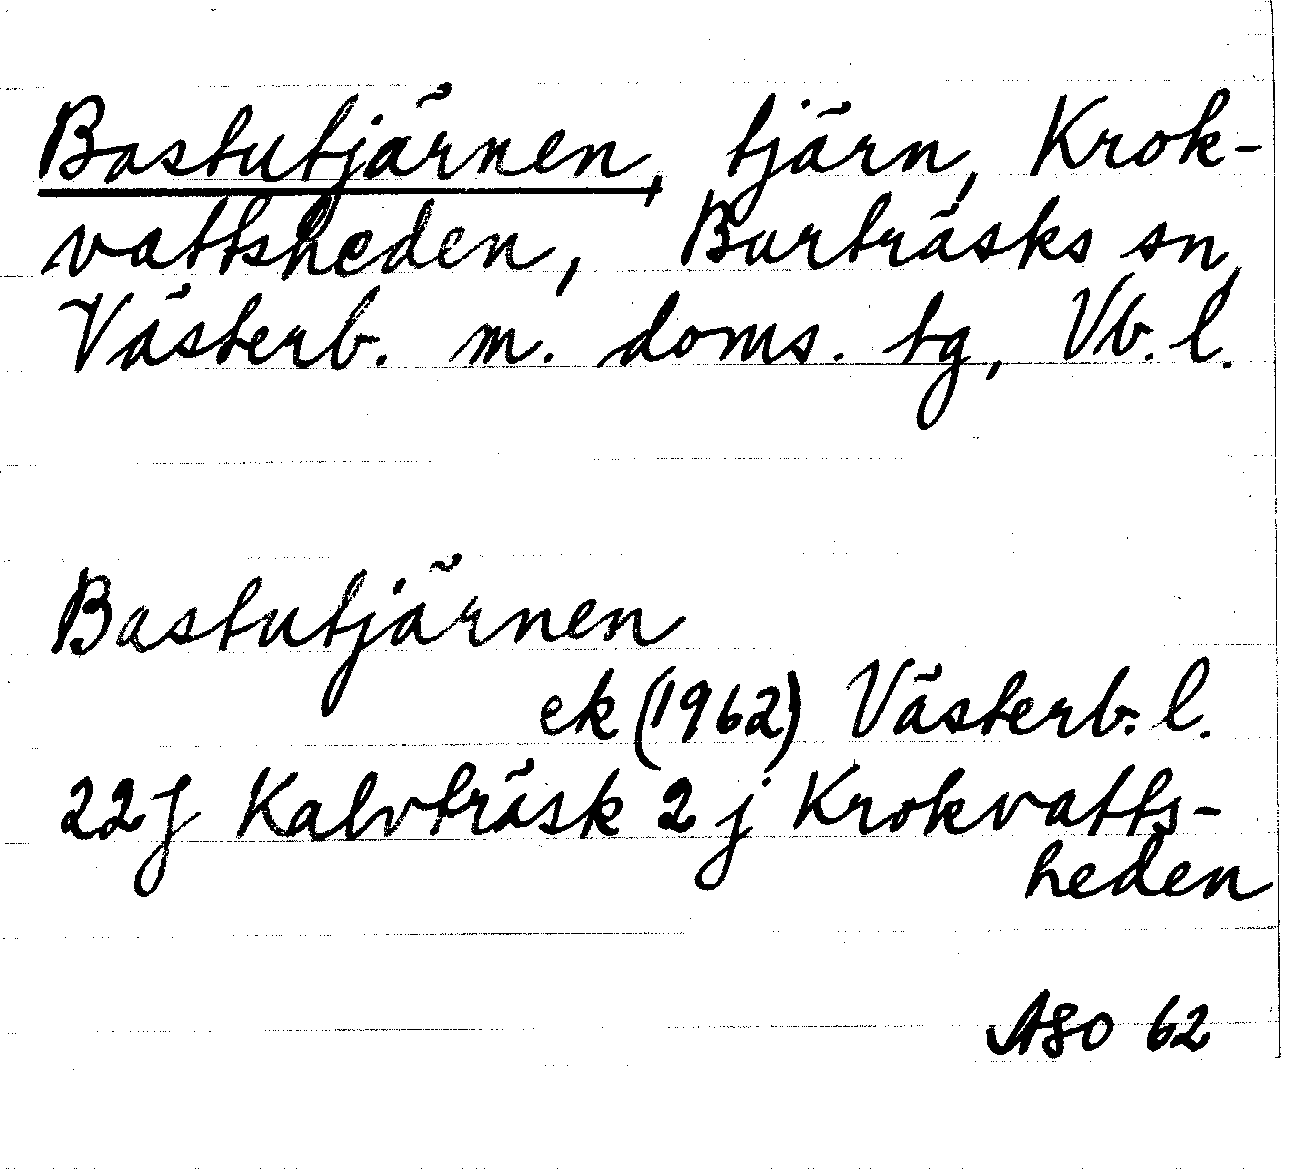 Bastutjärnen, tjärn, Krok-
vattsheden, Burträsks sn,
Västerb. m. doms. tg, Vb. l.
Bastutjärnen
ek (1962) Västerb. l.
22J Kalvträsk 2j Krokvatts-
heden
ASO 62